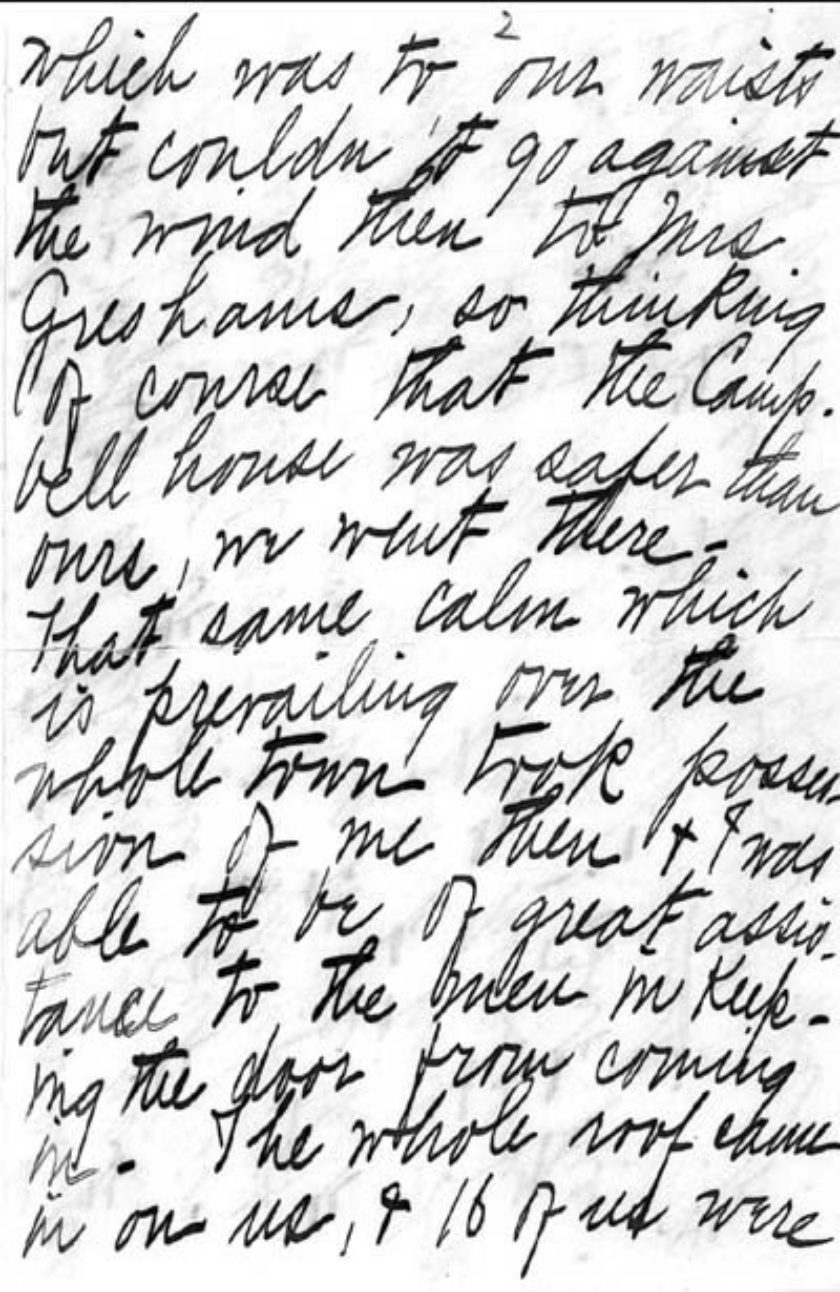 2
which was to our waists
but couldn't go against
the wind then to Mrs
Greshams, so thinking
of course that the Camp-
bell house was safer than
ours, we went there -
That same calm which
is prevailing over the
whole town took posses
sion of me then & I was
able to be of great assis-
tance to the men in keep-
ing the door from coming
in - The whole roof came
in on us, & 16 of us were